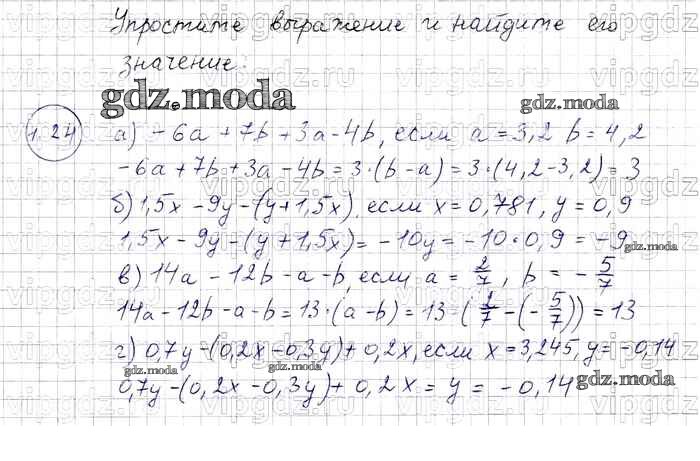 Упростите выражение и найдите его
значение:
gdz.moda
gdz.moda
1.24
а) -6a + 7b + 3a - 4b, если a = 3,2 b = 4,2
-6a + 7b + 3a - 4b = 3·(b - a) = 3·(4,2 - 3,2) = 3
б) 1,5x - 9y - (y + 1,5x), если x = 0,781, y = 0,9
1,5x - 9y - (y + 1,5x) = -10y = -10·0,9 = -9
gdz.moda
в) 14a - 12b - a - b, если a = 2/7, b = -5/7
14a - 12b - a - b = 13·(a - b) = 13·(2/7 - (-5/7)) = 13
г) 0,7y - (0,2x - 0,3y) + 0,2x, если x = 3,245, y = -0,14
gdz.moda
0,7y - (0,2x - 0,3y) + 0,2x = y = -0,14
gdz.moda